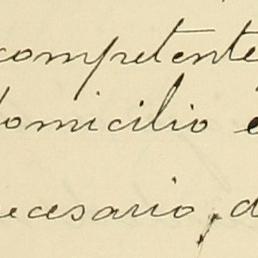 competente
domicilio é
necesario, d